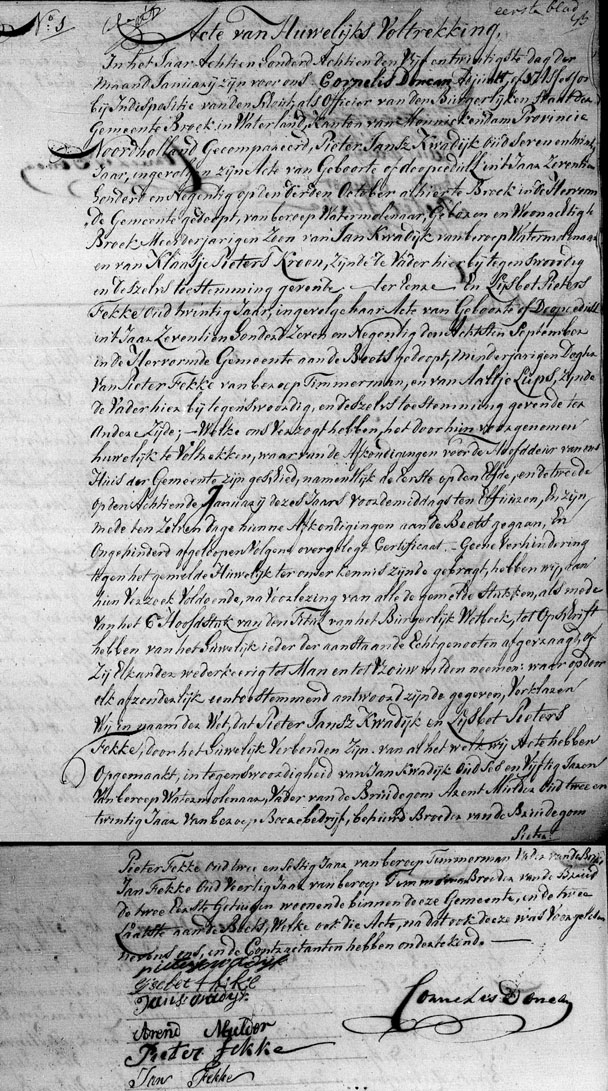 eerste blad
N.º 5
Acte van Huwelijks Voltrekking,
In het Jaar Achtien Honderd Achtien den Vijf en twintigste dag der
Maand Januarij zijn voor ons Cornelis Doncan Adjunct of Assessor
bij Indispositie van den Schout als Officier van den Burgerlijken Staat der
Gemeente Broek in Waterland, Kanton van Monnickendam Provincie
Noordholland Gecompareerd, Pieter Jansz Kwadijk Oud Seven en twintig
Jaar, ingevolgen zijn Acte van Geboorte of doopcedull int Jaar Zeventien
Hondert en Negentig op den derden October alhier te Broek in de Hervorm
de Gemeente gedoopt, van beroep Watermolenaar, Geboren en Woonachtig te
Broek Meerderjarigen Zoon van Jan Kwadijk van beroep Watermolenaar
en van Klaasje Pieters Kroon, zijnde de Vader hier bij tegenswoordig
en deszelvs toestemming gevende ter Eenre En Lijsbet Pieters
Fekke Oud twintig Jaar, ingevolge haar Acte van Geboorte of Doopcedull
int Jaar Zeventien Honderd Zeven en Negentig den Achtsten September
in de Hervormde Gemeente aan de Beets gedoopt, Minderjarigen Dogter
Van Pieter Fekke van beroep Timmerman, en van Aaltje Lups, zijnde
de Vader hier bij tegenswoordig, en deszelvs toestemming gevende ter
Andere Zijde; Welke ons Verzogt hebben, het door hun voorgenomen
huwelijk te Voltrekken, waar van de Afkondigingen voor de Hoofddeur van ons
Huis der Gemeente zijn geschied, namentlijk de Eerste op den Elfde, en de tweede
op den Achtiende Januarij dezes Jaars Voordemiddags ten Elf uuren, En zijn
mede ten Zelven dage hunne Afkondigingen aan de Beets gegaan, En
Ongehinderd afgelopen Volgens overgelegt Certificaat. Geene Verhindering
tegen het gemelde Huwelijk ter onser kennis zijnde gebragt, hebben wij, aan
hun Verzoek Voldoende, na Voorlezing van alle de gemelde Stukken, als mede
Van het 6e Hoofdstuk van den Titul van het Burgerlijk Wetboek, tot Opschrift
hebben van het Huwelijk ieder der aanstaande Echtgenooten afgevraagd, of
Zij Elkander wederkeerig tot Man en tot Vrouw wilden neemen: waar op door
elk afzonderlijk een toestemmend antwoord zijnde gegeven, Verklaren
Wij in naam der Wet, dat Pieter Jansz Kwadijk en Lijsbet Pieters
Fekke, door het Huwelijk Verbonden Zijn. van al het welk wij Acte hebben
Opgemaakt, in tegenswoordigheid van Jan Kwadijk Oud Ses en Vijftig Jaren
Van beroep Watermolenaar, Vader van de Bruidegom Arent Mulder Oud twee en
twintig Jaar Van beroep Boerebedrijf, behuwd Broeder van de Bruidegom
Pieter
Pieter Fekke Oud twee en Sestig Jaar van beroep Timmerman Vader van de Bruid
Jan Fekke Oud Veertig Jaar van beroep Timmerman Broeder van de Bruid
de twee Eerste Getuigen woonende binnen deeze Gemeente, en de twee
Laatste aan de Beets, Welke ook die Acte, na dat ook deeze was Voorgelesen
nevens ons, en de Contractanten hebben ondertekend
pieter kwadijk
Jan kwadijk
Cornelis Doncan
Arend Mulder
Pieter Fekke
Jan Fekke